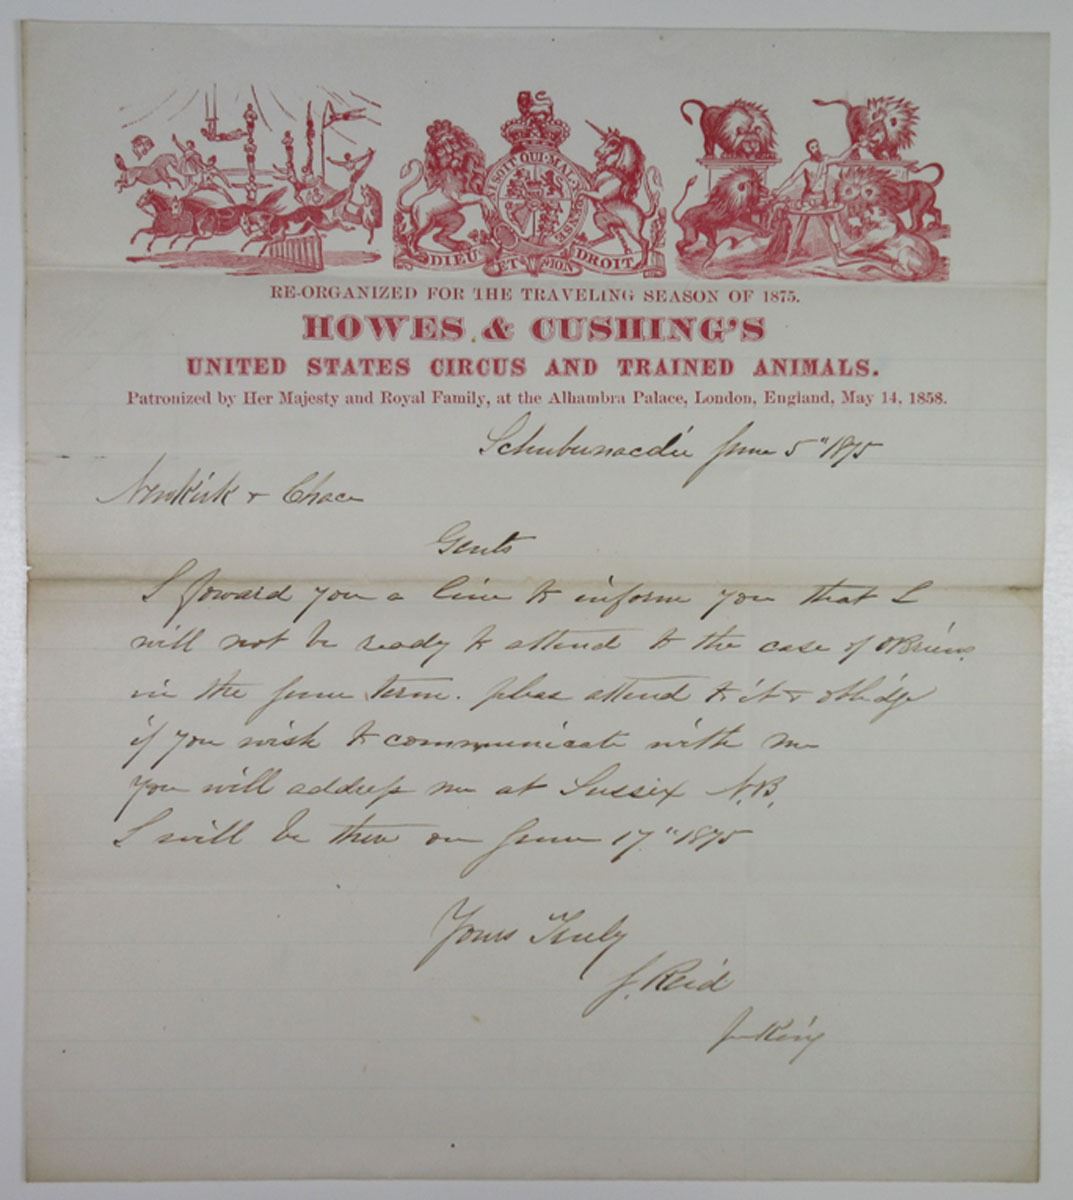 SOIT QUI MAL Y PENSE
DIEU ET MON DROIT
RE-ORGANIZED FOR THE TRAVELING SEASON OF 1875.
HOWES & CUSHING'S
UNITED STATES CIRCUS AND TRAINED ANIMALS.
Patronized by Her Majesty and Royal Family, at the Alhambra Palace, London, England, May 14, 1858.
Schubenacdie June 5" 1875
Newkirk & Chace
Gents
I foward you a line to inform you that I
will not be ready to attend to the case of OBriens
in the June term. pleas attend to it & oblidge
if you wish to communicate with me
you will address me at Sussex N.B.
I will be there on June 17" 1875
Yours Truly
J. Reid
King